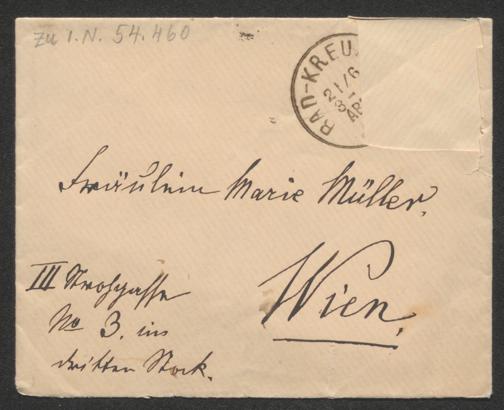 zu I.N. 54.460
BAD-KREU
21/6
Fräulein Marie Müller,
Wien,
III Strohgasse
No 3. im
dritten Stock.